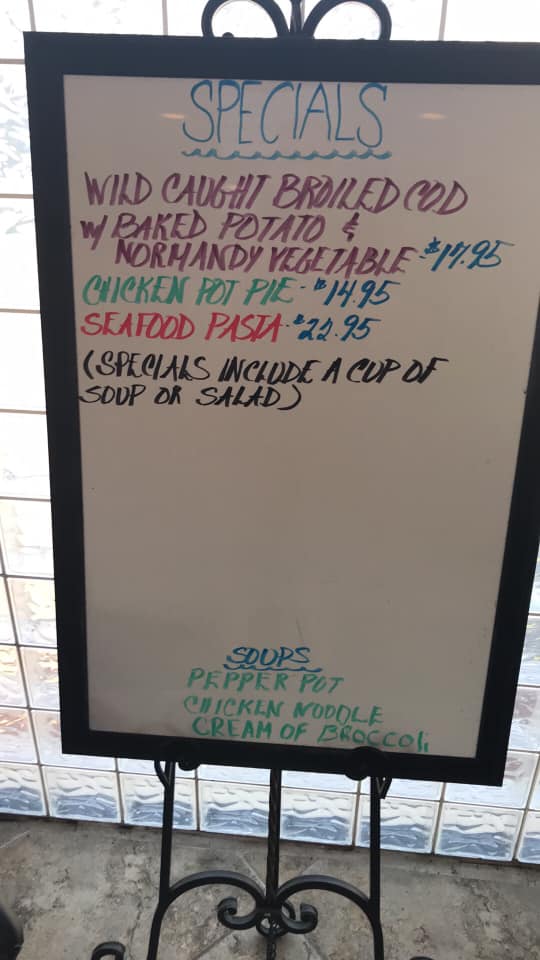 SPECIALS
WILD CAUGHT BROILED COD
w/ BAKED POTATO &
NORMANDY VEGETABLE - $17.95
CHICKEN POT PIE - $14.95
SEAFOOD PASTA - $22.95
(SPECIALS INCLUDE A CUP OF
SOUP OR SALAD)
SOUPS
PEPPER POT
CHICKEN NOODLE
CREAM OF BROCCOLi